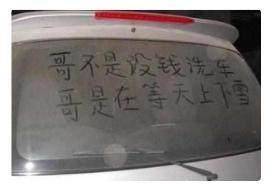 哥不是没钱洗车
哥是在等天上下雪